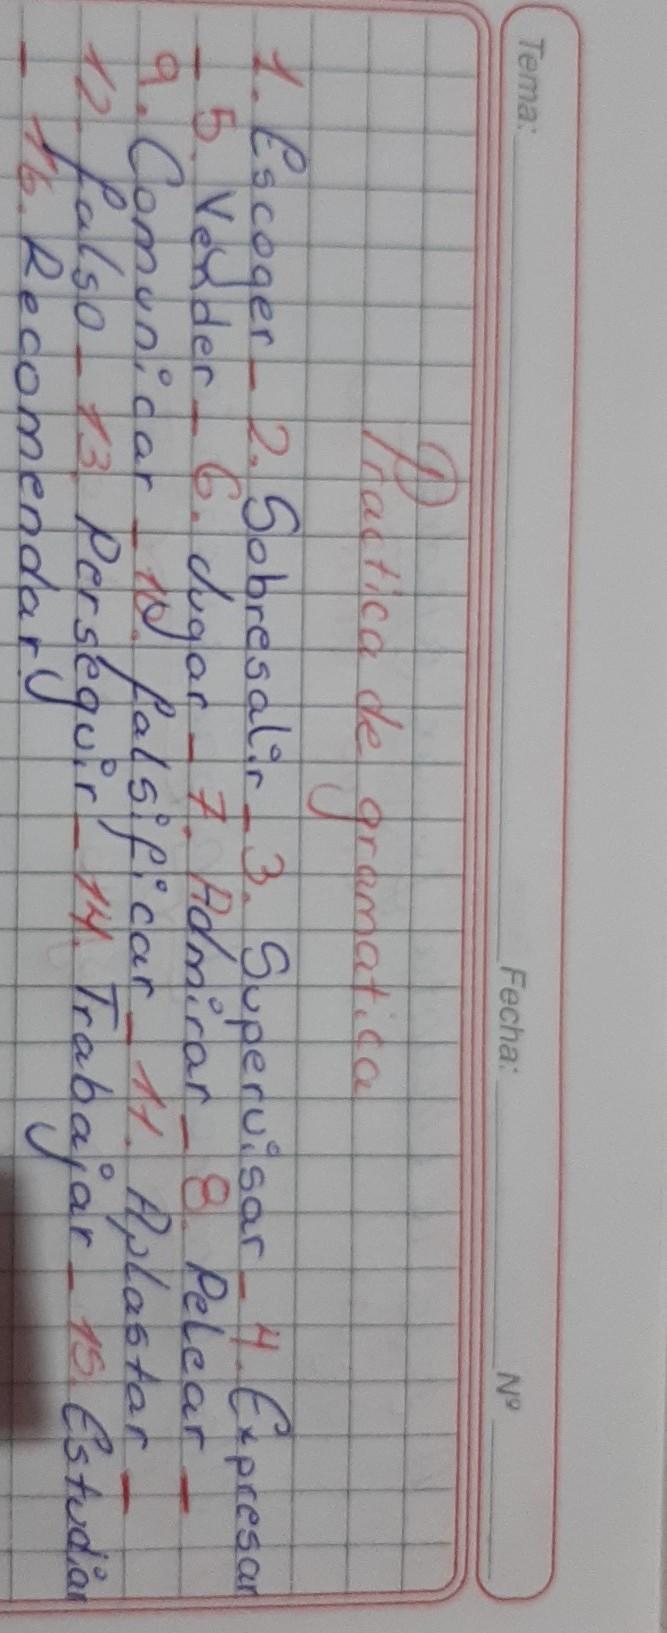 Tema: Fecha: Nº
Practica de gramatica
1. Escoger - 2. Sobresalir - 3. Supervisar - 4. Expresar
- 5. Vender - 6. Jugar - 7. Admirar - 8. Pelear -
9. Comunicar - 10. falsificar - 11. Aplastar -
12. falso - 13. Perseguir - 14. Trabajar - 15. Estudiar
- 16. Recomendar